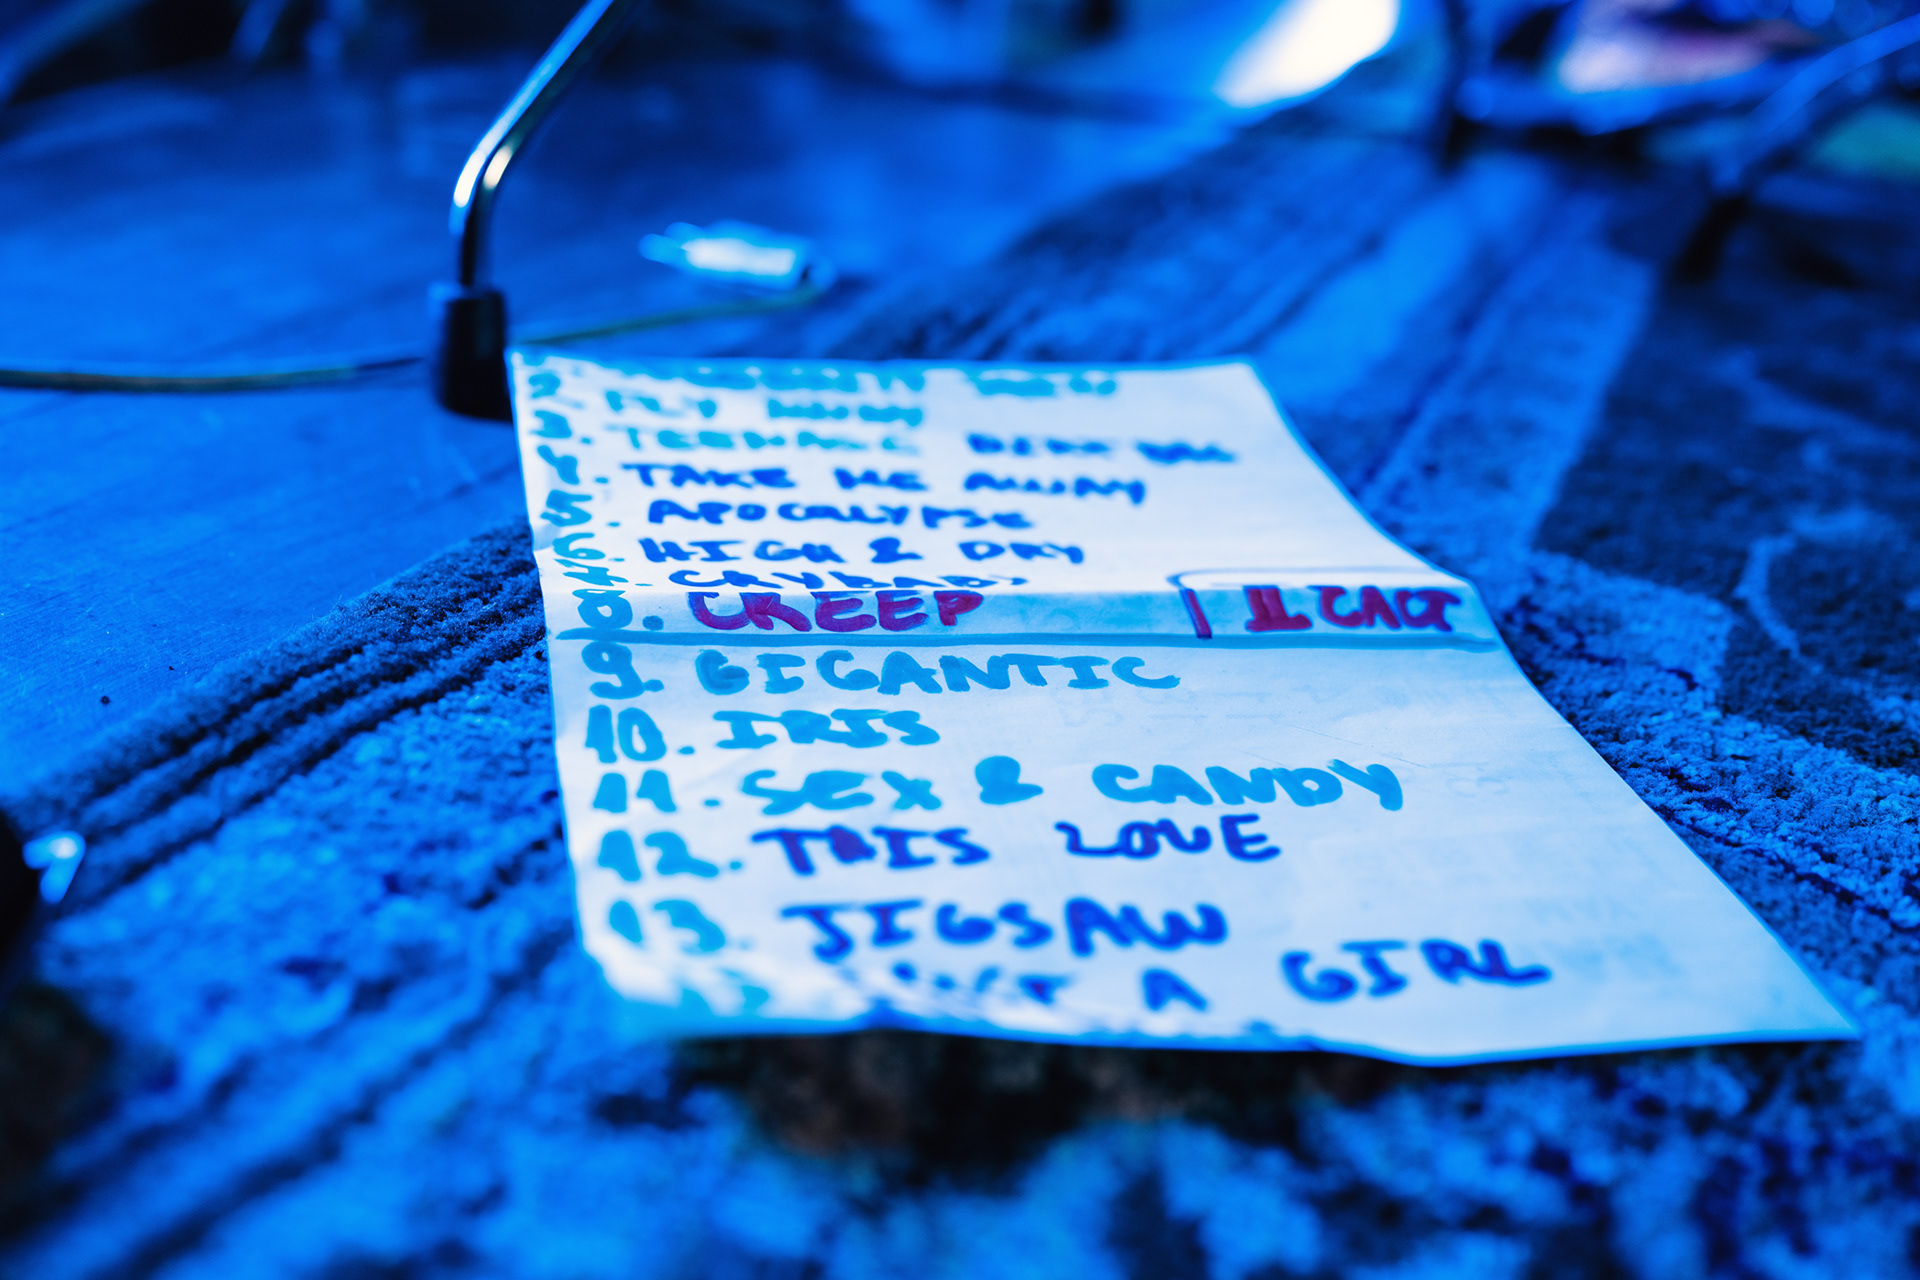 2. FLY AWAY
3. TEENAGE DIRTBAG
4. TAKE ME AWAY
5. APOCALYPSE
6. HIGH & DRY
7. CRYBABY
8. CREEP
9. GIGANTIC
10. IRIS
11. SEX & CANDY
12. THIS LOVE
13. JIGSAW
A GIRL